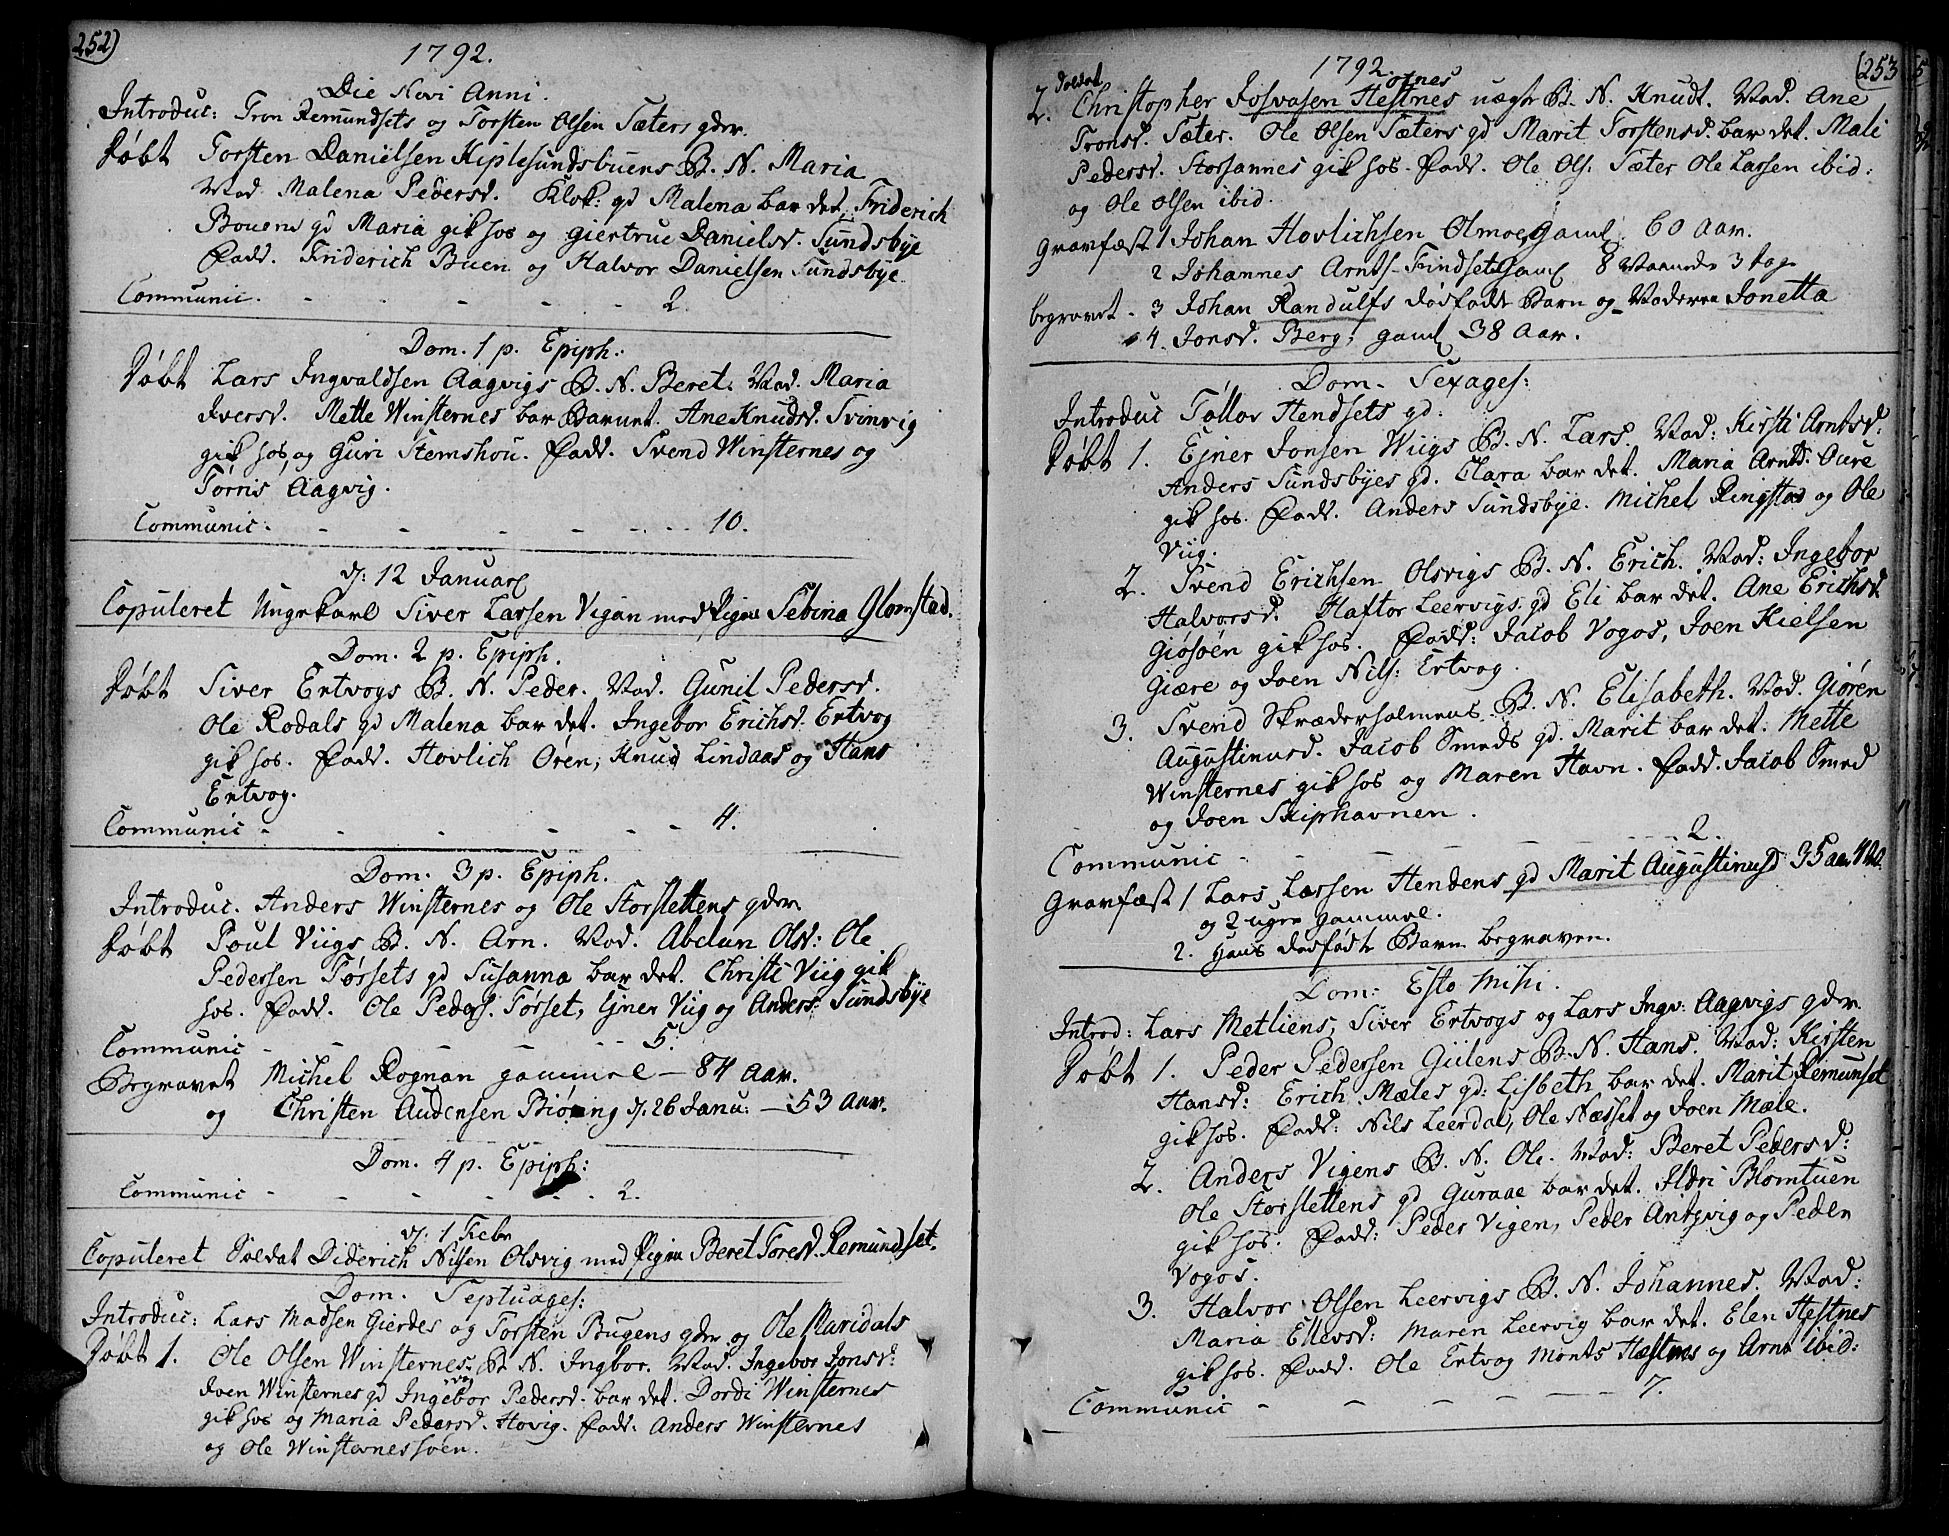 252)
1792.
Die Novi Anni.
Introduc: Tron Remundsets og Torsten Olsen Sæters gdr.
Døbt Torsten Danielsen Kiplesundsbuens B. N. Maria
Mod. Malena Pedersd. Klok: gd Malena bar det. Friderich
Bouens gd Maria gik hos og giertrue Danielsd. Sundsbye
Fadd. Friderich Buen og Halvor Danielsen Sundsbye.
Communic. - - - - - 2.
Dom. 1 p. Epiph:
Døbt Lars Ingvaldsen Aagvigs B. N. Beret. Mod. Maria
Iversd. Mette Winsternes bar Barnet. Ane Knudsd. Svinvig
gik hos, og Guri Stemshou. Fadd. Svend Winsternes og
Tørris Aagvig.
Communic. - - - - - 10.
d: 12 Januar
Copuleret Ungekarl Siver Larsen Vigan med Pigen Sebina Glomstad.
Dom. 2 p. Epiph.
Døbt Siver Ertvogs B. N. Peder. Mod. Gunil Pedersd.
Ole Rodals gd Malena bar det. Ingebor Erichsd. Ertvog
gik hos. Fadd. Hovlich Ören, Knud Lindaas og Hans
Ertvog.
Communic - - - - - 4.
Dom. 3 p. Epiph.
Introduc. Anders Winsternes og Ole Storslettens gdr.
Døbt Poul Viigs B. N. Arn. Mod. Abelun Olsd: Ole
Pedersen Tørsets gd Susanna bar det. Christi Viig gik
hos. Fadd. Ole Peders. Tørset, Ejner Viig og Anders Sundsbye
Communic - - - - - 5.
Begravet Michel Rognan gammel - 84 Aar.
og Christen Audensen Biøring d. 26 Janu: - 53 Aar.
Dom. 4 p. Epiph:
Communic - - - - - 2.
d: 1 Febr
Copuleret Soldat Diderich Nilsen Olsvig med Pigen Beret Toresd. Remundset.
Dom. Septuages:
Introduc: Lars Madsen Gierdes og Torsten Bugens gdr og Ole Maridals
Døbt 1. Ole Olsen Winsternes B. N. Ingbor. Mod. Ingebor Jonsd:
Joen Winsternes gd Ingebor Pedersd. bar det. Dordi Winsternes
gik hos og Maria Pedersd. Hovig. Fadd: Anders Winsternes
og Ole Winsternessøen.
1792.
(253
Soldat Otnes
2. Christopher Josvasen Hestnes uægte B. N. Knudt. Mod. Ane
Tronsd. Sæter. Ole Olsen Sæters gd Marit Torstensd. bar det. Mali
Pedersd. Storsannes gik hos. Fadd. Ole Ols. Sæter Ole Larsen ibid:
og Ole Olsen ibid.
Gravfæst 1 Johan Hovlichsen Olmoe, Gaml 60 Aar.
2 Johannes Arnts. Findset Gaml 8 Maaneder 3 dage
begravet - 3 Johan Randulfs dødfødt Barn og Moderen Jonetta
4. Jonsd. Berg, gaml 38 Aar.
Dom. Sexages:
Introduc Tøllov Hendsets gd:
Døbt 1. Ejner Jonsen Wiigs B. N. Lars. Mod: Kirsti Arntsd.
Anders Sundsbyes gd. Clara bar det. Maria Arntsd. Oure
gik hos. Fadd. Anders Sundsbye. Michel Ringstad og Ole
Viig.
2. Svend Erichsen Olsvigs B. N. Erich. Mod: Ingebor
Halvorsd. Haftor Leervigs gd Eli bar det. Ane Erichsd
Giøsøen gik hos. Fadd: Jacob Vogos, Joen Kielsen
Giære og Joen Nils: Ertvog.
3. Svend Skræderholmens B. N. Elisabeth. Mod. Giøren
Augustinusd. Jacob Smeds gd. Marit bar det. Mette
Winsternes gik hos og Maren Havn. Fadd. Jacob Smed
og Joen Skiphavnen.
Communic - - - - - 2.
Gravfæst 1 Lars Larsen Hendens gd Marit Augustinusd 35 aar
og 2 uger gammel.
2. Hans dødfødte Barn begraven.
Dom: Esto Mihi.
Introd: Lars Metliens, Siver Ertvogs og Lars Ingv: Aagvigs gdr.
Døbt 1. Peder Pedersen Giilens B. N. Hans. Mod: Kirsten
Hansd: Erich Mæles gd: Lisbeth bar det. Marit Remunset
gik hos. Fadd: Nils Leerdal, Ole Næsset og Joen Mæle.
2. Anders Vigens B. N. Ole. Mod: Beret Pedersd:
Ole Storslettens gd Guraae bar det. Ildri Blomtuen
gik hos. Fadd: Peder Vigen, Peder Antzvig og Peder
Vogos.
3. Halvor Olsen Leervigs B. N. Johannes. Mod:
Maria Ellevsd: Maren Leervig bar det. Elen Hestnes
gik hos. Fadd. Ole Ertvog Monts Hestnes og Arnt ibid:
Communic - - - - - 7.